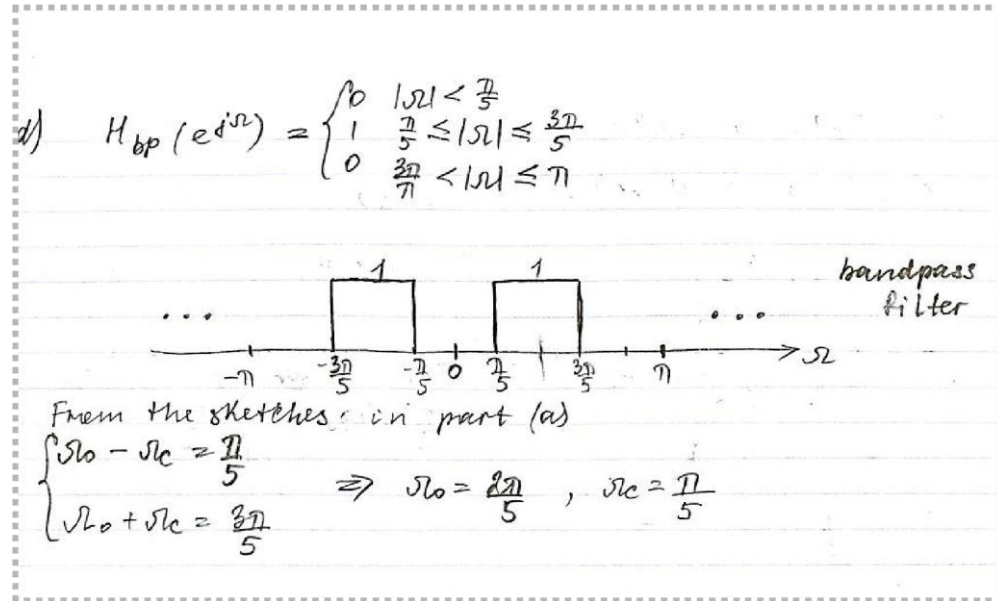 d) H_bp (e^jΩ) = { 0 |Ω| < π/5
1 π/5 ≤ |Ω| ≤ 3π/5
0 3π/π < |Ω| ≤ π
1 1 bandpass
filter
... ...
-π -3π/5 -π/5 0 π/5 3π/5 π Ω
From the sketches in part (a)
{ Ω₀ - Ωc = π/5
⇒ Ω₀ = 2π/5 , Ωc = π/5
Ω₀ + Ωc = 3π/5